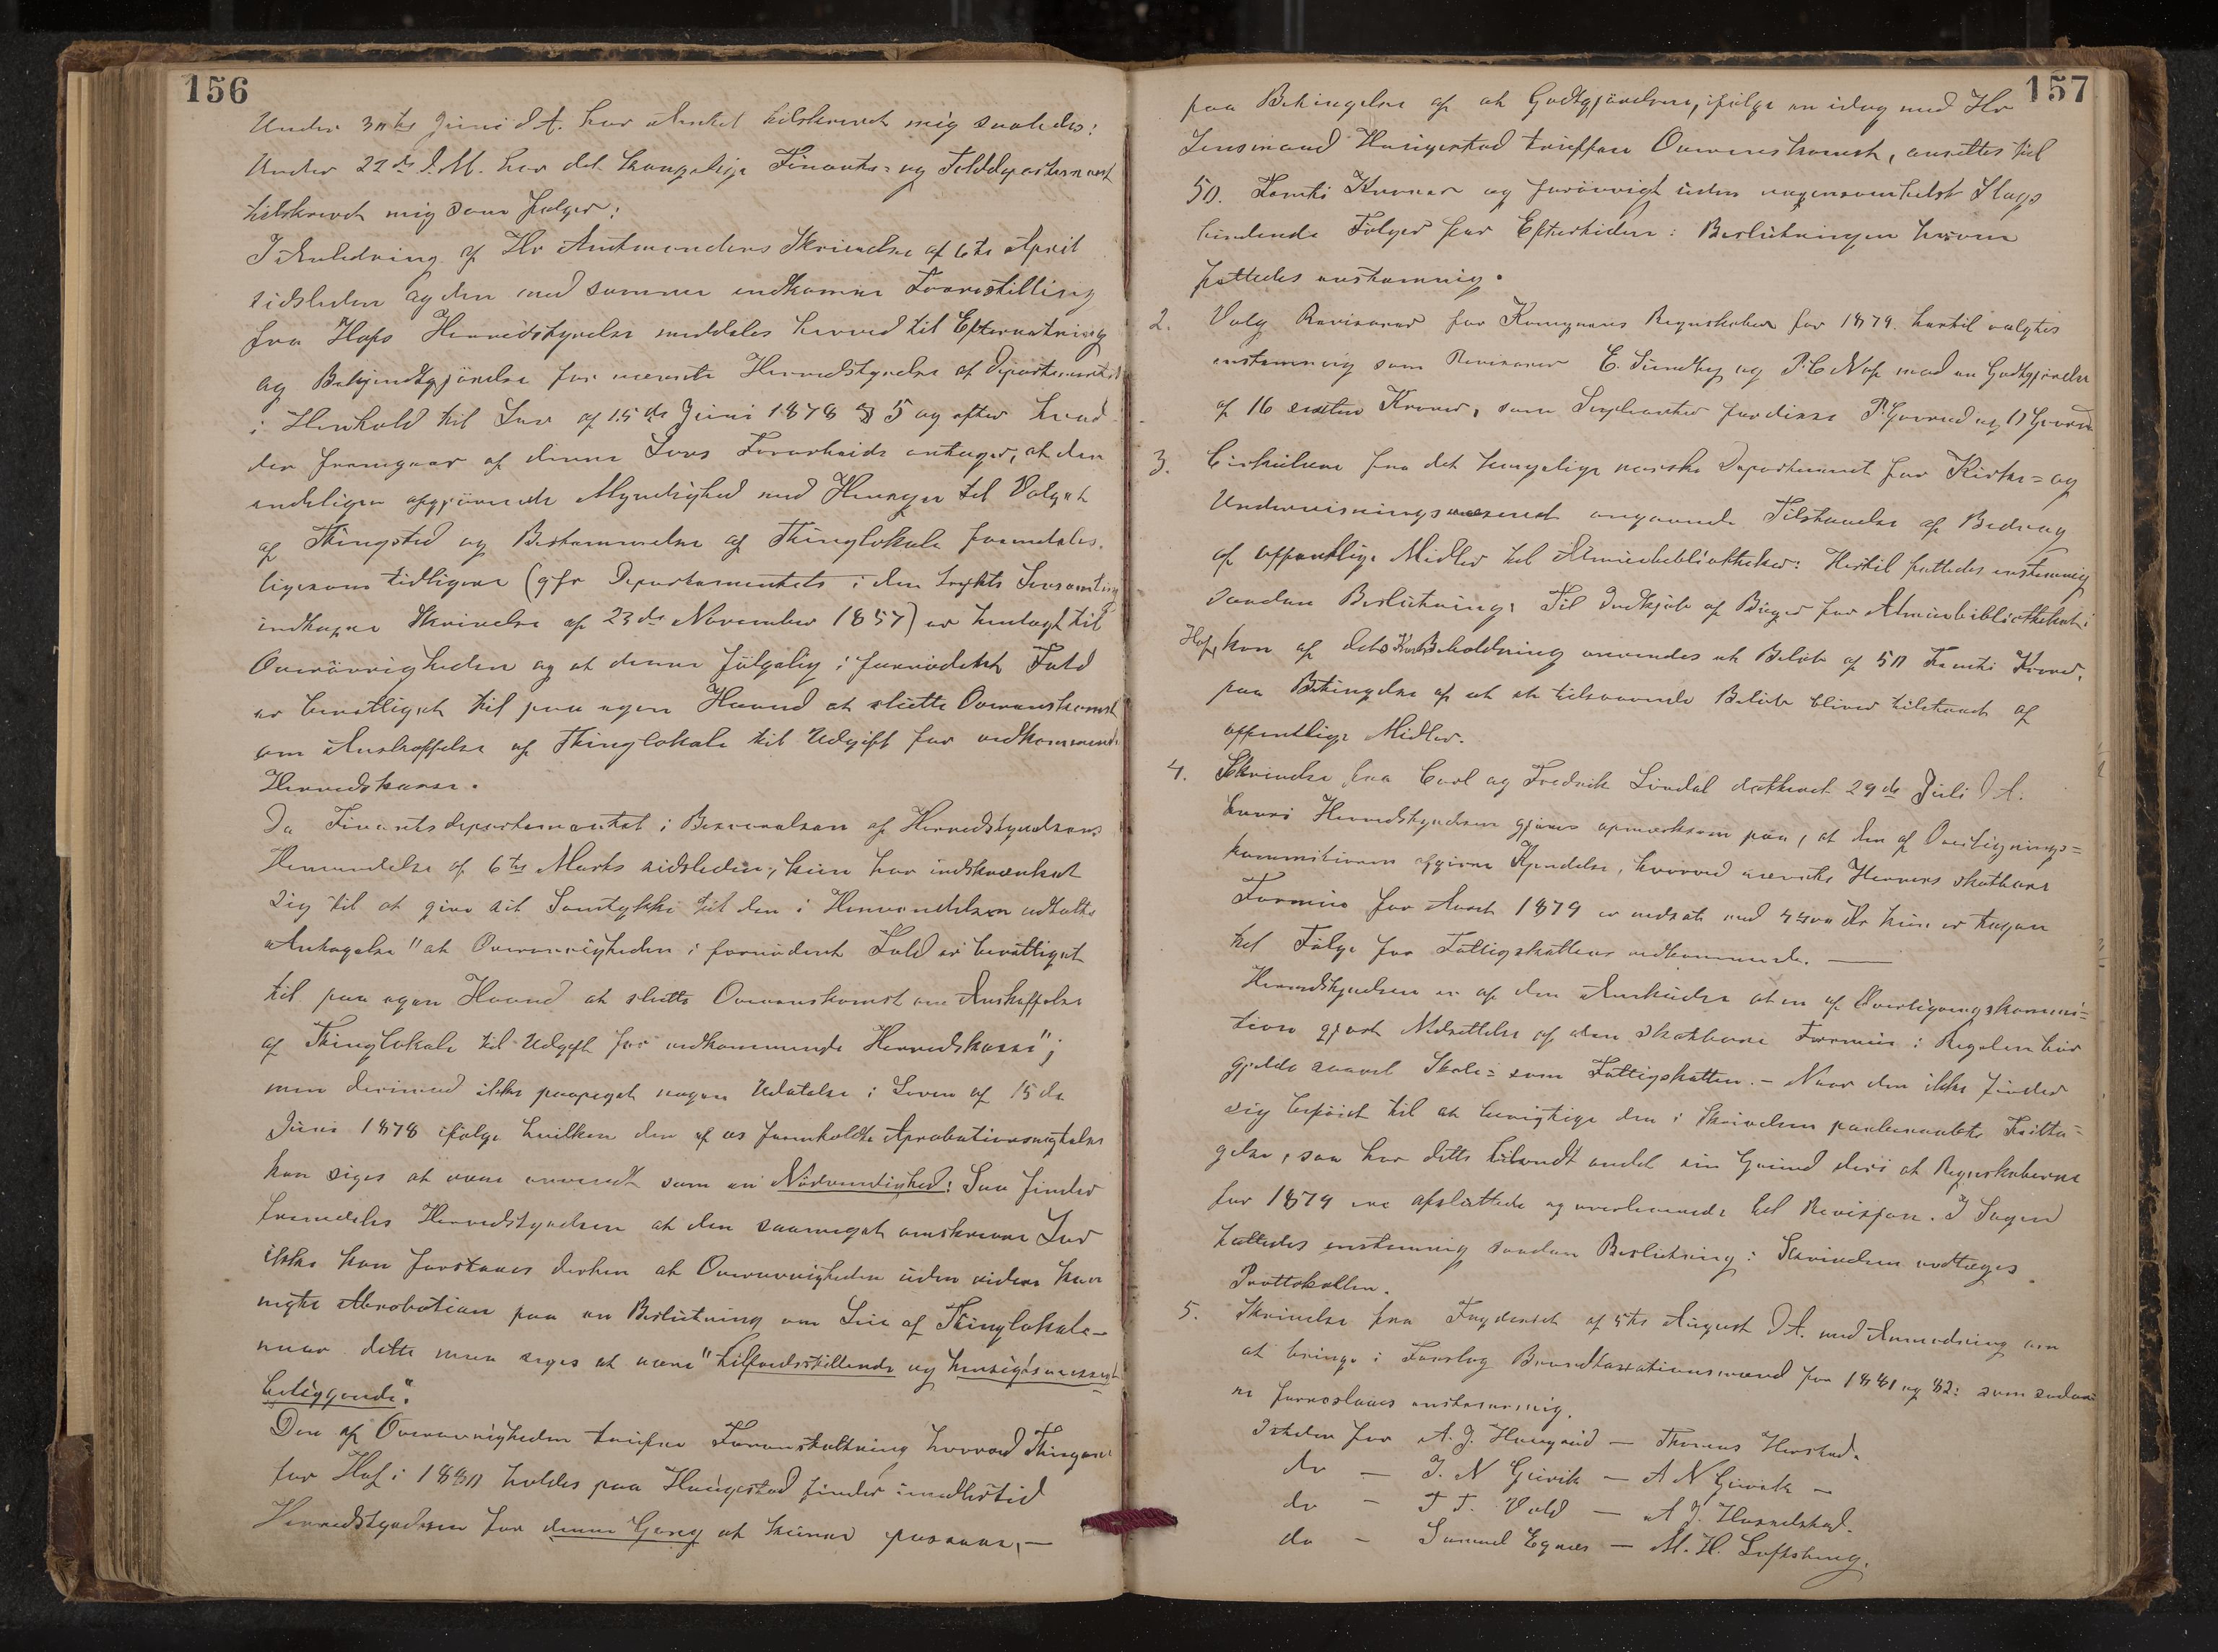 156
Under 30te Juni d.A. har Amtet tilskrevet mig saaledes:
Under 22de d.M. har det kongelige Finants- og Tolddepartement
tilskrevet mig som følger:
I Anledning af Hr Amtmandens Skrivelse af 6te April
sidstleden og den med samme indkomne Forestilling
fra Hofs Herredstyrelse meddeles herved til Efterretning
og Bekjendtgjörelse for nævnte Herredstyrelse at Departementet
i Henhold til Lov af 15de Juni 1878 § 5 og efter hvad
der fremgaar af denne Lovs Forarbeide antager, at den
endeligen afgjörende Myndighed med Hensyn til Valget
af Thingsted og Bestemmelse af Thinglokale fremdeles,
ligesom tidligere (jfr Departementets i den trykte Lovsamling
indtagne Skrivelse af 23de November 1857) er henlagt til
Overövrigheden og at denne følgelig i fornödent Fald
er berettiget til paa egen Haand at slutte Overenskomst
om Anskaffelse af Thinglokale til Udgift for vedkommende
Herredskasse.
Da Finantsdepartementet i Besvarelsen af Herredstyrelsens
Henvendelse af 6te Marts sidstleden, kun har indskrænket
sig til at give sit Samtykke til den i Henvendelsen udtalte
Antagelse "at Overövrigheden i fornödent Fald er berettiget
til paa egen Haand at slutte Overenskomst om Anskaffelse
af Thinglokale til Udgift for vedkommende Herredskasse";
men derimod ikke paapeget nogen Udtalelse i Loven af 15de
Juni 1878 ifölge hvilken den af os fremholdte Aprobationsnegtelse
kan siges at være anvendt som en Nödvendighed: Saa finder
fremdeles Herredstyrelsen at den saameget omskrevne Lov
ikke kan forstaaes derhen at Overövrigheden uden videre kan
negte Abrobation paa en Beslutning om Leie af Thinglokale –
naar dette maa siges at være "tilfredsstillende og hensigtsmæssigt
beliggende".
Den af Overövrigheden trufne Foranstaltning hvorved Thingene
for Hof i 1880 holdes paa Haugestad finder imidlertid
Herredstyrelsen for denne Gang at kunne passere, –
157
paa Betingelse af at Godtgjörelsen, ifölge en idag med Hr
Lensmand Haugestad truffen Overenskomst, ansættes til
50. Femti Kroner og forövrigt uden nogensomhelst Slags
bindende Følger for Eftertiden: Beslutningen herom
fattedes enstemmig.
2. Valg Revisorer for Komunens Regnskaber for 1879. hertil valgtes
enstemmig som Revisorer E. Sundby og P. C Nøf med en Godtgjörelse
af 16 sexten Kroner, som Suplianter for disse P. Gavrud og O Gavrud
3. Cirkulære fra det kongelige norske Departement for Kirke- og
Undervisningsvæsenet angaaende Tilstaaelse af Bidrag
af offentlige Midler til Almuebibliotheker: Hertil fattedes enstemmig
saadan Beslutning: Til Indkjöb af Böger for Almuebibliotheket i
Hof, kan af dets Kassebeholdning anvendes et Belöb af 50 Femti Kroner,
paa Betingelse af at et tilsvarende Belöb bliver tilstaaet af
offentlige Midler.
4. Skrivelse fra Carl og Fredrik Livdal datteret 29de Juli d A.
hvori Herredstyrelsen gjöres opmærksom paa, at den af Overlignings=
kommitionen afgivne Kjendelse, hvorved nævnte Herrers skatbare
Formue for Aaret 1879 er nedsat med 4400 Kr kun er tagen
til Følge for Fattigskattens vedkommende. —
Herredstyrelsen er af den Anskuelse at en af Overligningskommi=
tion gjort Nedsættelse af den skatbare Formue i Regelen bör
gjelde saavel Skole= som Fattigskatten. – Naar den ikke finder
sig beföiet til at bevirkige den i Skrivelsen paaberaabte Fritta=
gelse, saa har dette blandt andet sin Grund deri at Regnskaberne
for 1879 ere afsluttede og overleverede til Revisjon. I Sagen
fattedes enstemmig saadan Beslutning: Skrivelsen vedtages
Prottokollen.
5. Skrivelse fra Fogderiet af 4te August d A. med Anmodning om
at bringe i Forslag Brandtaxationsmænd for 1881 og 82: som sadan
ne foreslaaes enstemmig.
Istedenfor A. J. Haugrud – Thomas Herstad.
do – J. N Gjevik – A N Gjevik –
do – T T. Vold – A J. Hasselstad.
do – Samuel Egnæs – M. H. Loftshuug.